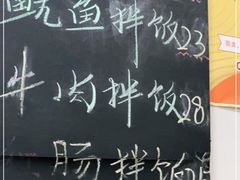 鱿鱼拌饭23
牛肉拌饭28
肠拌饭